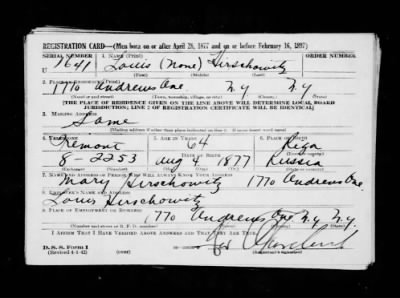 REGISTRATION CARD—(Men born on or after April 28, 1877 and on or before February 16, 1897)
SERIAL NUMBER 1. NAME (Print) ORDER NUMBER
U 1641 Louis (none) Hirschowitz
(First) (Middle) (Last)
2. PLACE OF RESIDENCE (Print)
1770 Andrews Ave N.Y N.Y
(Number and street) (Town, township, village, or city) (County) (State)
[THE PLACE OF RESIDENCE GIVEN ON THE LINE ABOVE WILL DETERMINE LOCAL BOARD
JURISDICTION; LINE 2 OF REGISTRATION CERTIFICATE WILL BE IDENTICAL]
3. MAILING ADDRESS
Same
[Mailing address if other than place indicated on line 2. If same insert word same]
4. TELEPHONE 5. AGE IN YEARS 6. PLACE OF BIRTH
Tremont 64 Riga
DATE OF BIRTH
8-2253 Aug 4 1877 Russia
7. NAME AND ADDRESS OF PERSON WHO WILL ALWAYS KNOW YOUR ADDRESS
Mary Hirschowitz 1770 Andrews Ave
8. EMPLOYER'S NAME AND ADDRESS
Louis Hirschowitz
9. PLACE OF EMPLOYMENT OR BUSINESS
1770 Andrews Ave N.Y N.Y.
(Number and street or R. F. D. number) (Town) (County) (State)
I AFFIRM THAT I HAVE VERIFIED ABOVE ANSWERS AND THAT THEY ARE TRUE.
D. S. S. Form 1
(Revised 4-1-42) (Registrant's signature)